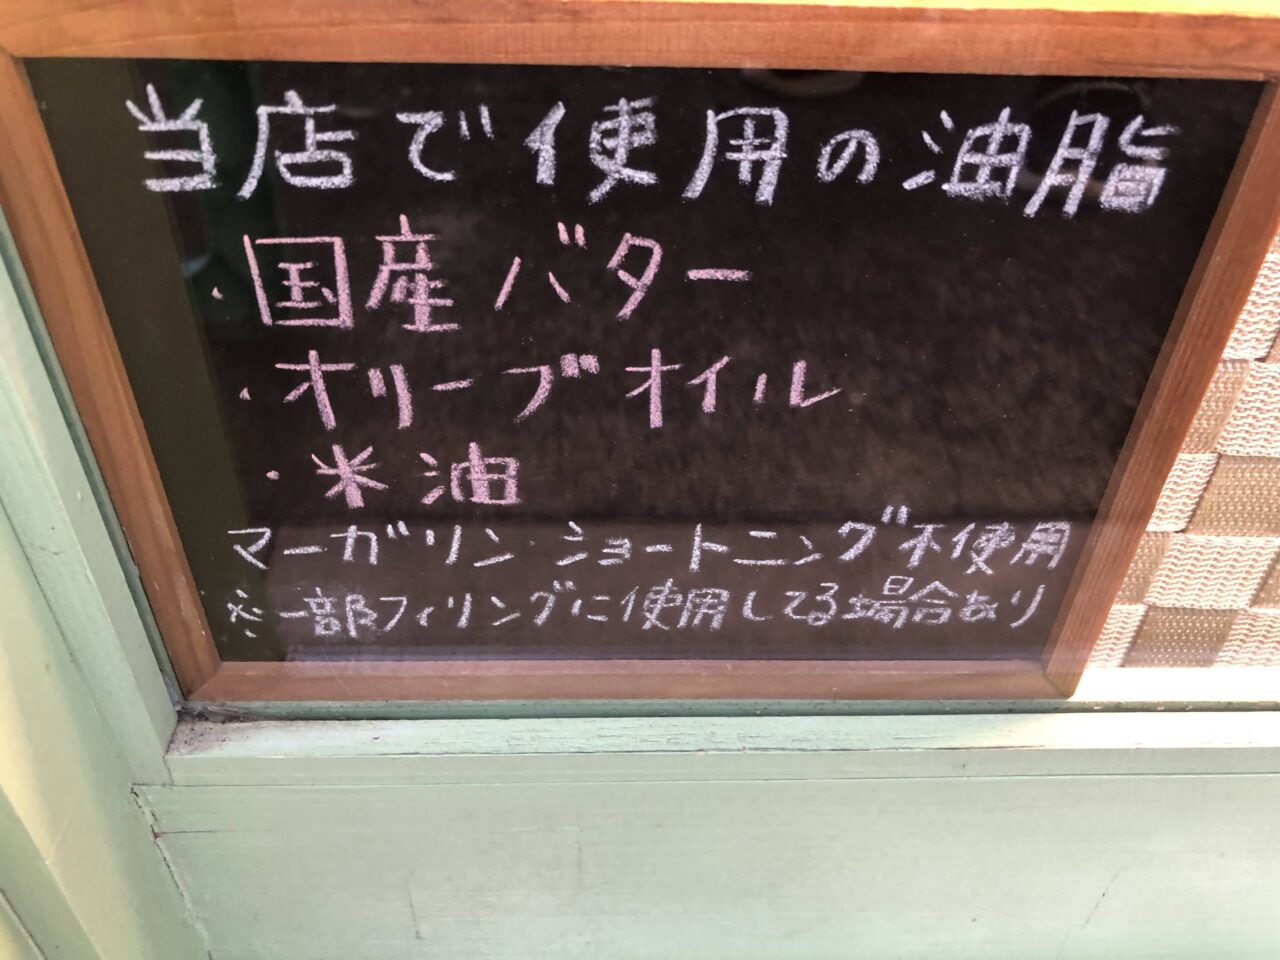 当店で使用の油脂
・国産バター
・オリーブオイル
・米油
マーガリン・ショートニング不使用
※一部フィリングに使用してる場合あり